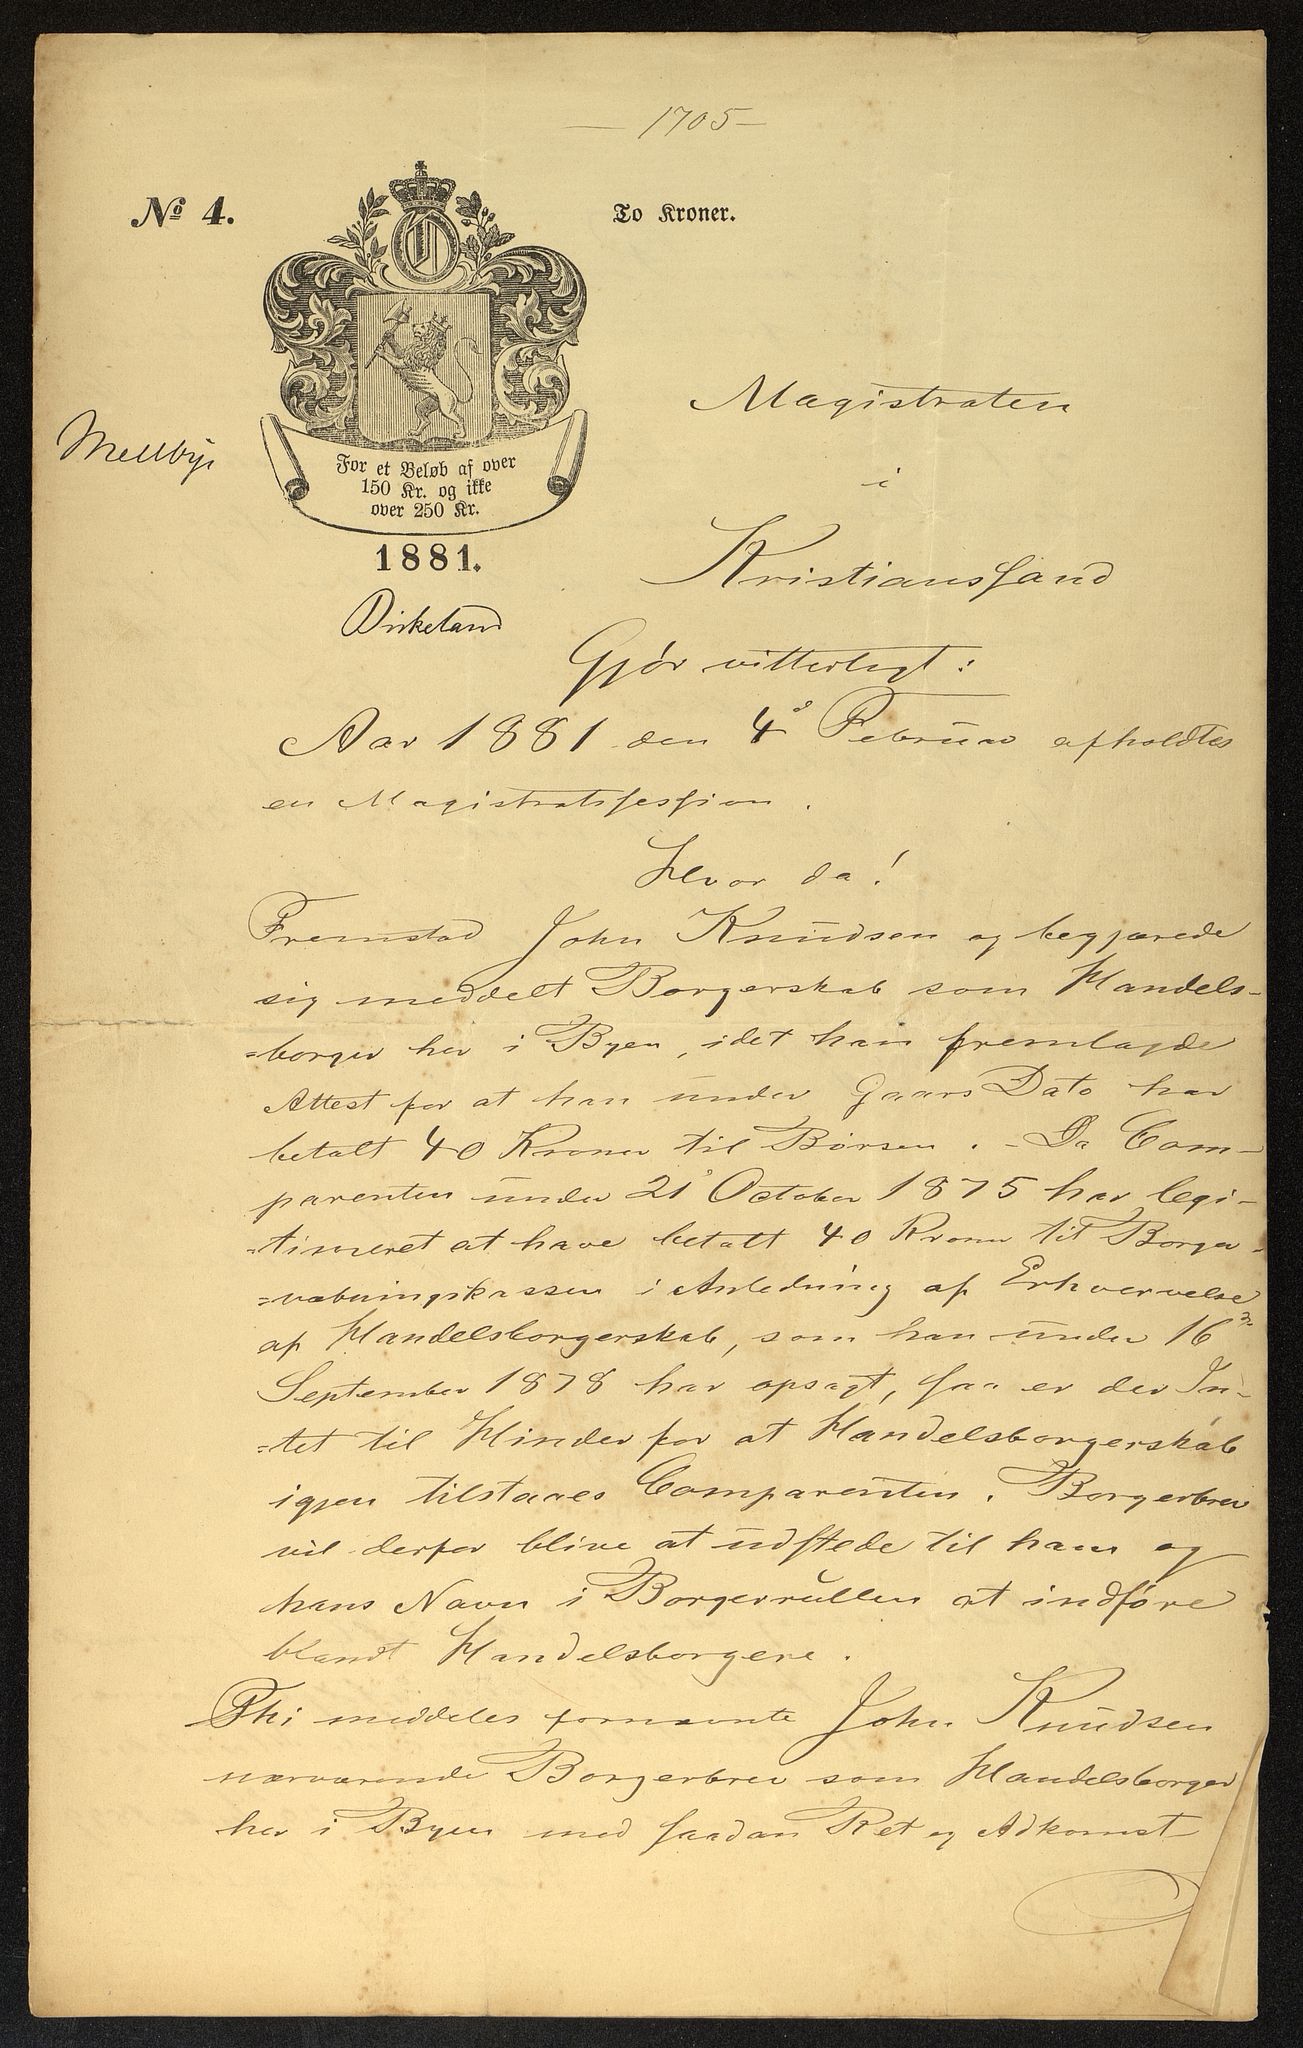 — 1705 —
No 4.
To Kroner.
For et Beløb af over
150 Kr. og ikke
over 250 Kr.
1881.
Mellbye
Birkeland
Magistraten
i
Kristianssand
Gjør vitterligt:
Aar 1881 den 4de Februar afholdtes
en Magistratssession.
Hvor da!
Fremstod John Knudsen og begjærede
sig meddelt Borgerskab som Handels-
=borger her i Byen, idet han fremlagde
Attest for at han under Gaars Dato har
betalt 40 Kroner til Børsen. – Da Com-
parenten under 21de October 1875 har legi-
=timeret at have betalt 40 Kroner til Borger-
=væbningskassen i Anledning af Erhvervelse
af Handelsborgerskab, som han under 16de
September 1878 har opsagt, saa er der In-
=tet til Hinder for at Handelsborgerskab
igjen tilstaaes Comparenten. Borgerbrev
vil derfor blive at udstede til ham og
hans Navn i Borgerrullen at indføre
blandt Handelsborgere.
Thi meddeles fornævnte John Knudsen
nærværende Borgerbrev som Handelsborger
her i Byen med saadan Ret og Adkomst